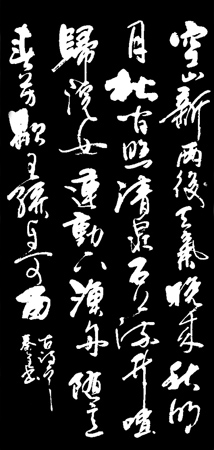 空山新雨後天氣晚來秋明
月松間照清泉石上流竹喧
歸浣女蓮動下漁舟隨意
春芳歇王孫自可留
古詩